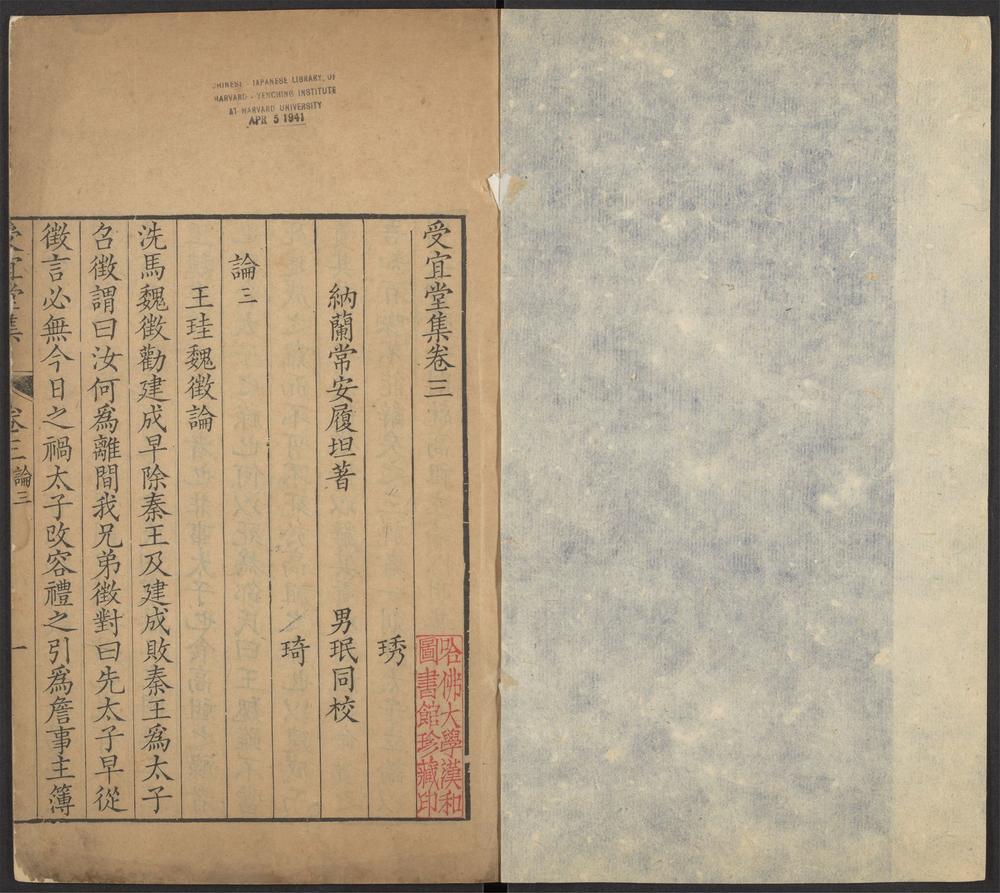 CHINESE - JAPANESE LIBRARY, OF
HARVARD - YENCHING INSTITUTE
AT HARVARD UNIVERSITY
APR 5 1941
受宜堂集卷三
哈佛大學漢和
圖書館珍藏印
琇
納蘭常安履坦著 男珉同校
琦
論三
王珪魏徵論
洗馬魏徵勸建成早除秦王及建成敗秦王為太子
召徵謂曰汝何為離間我兄弟徵對曰先太子早從
徵言必無今日之禍太子改容禮之引為詹事主簿
受宜堂集 卷三 論三 一